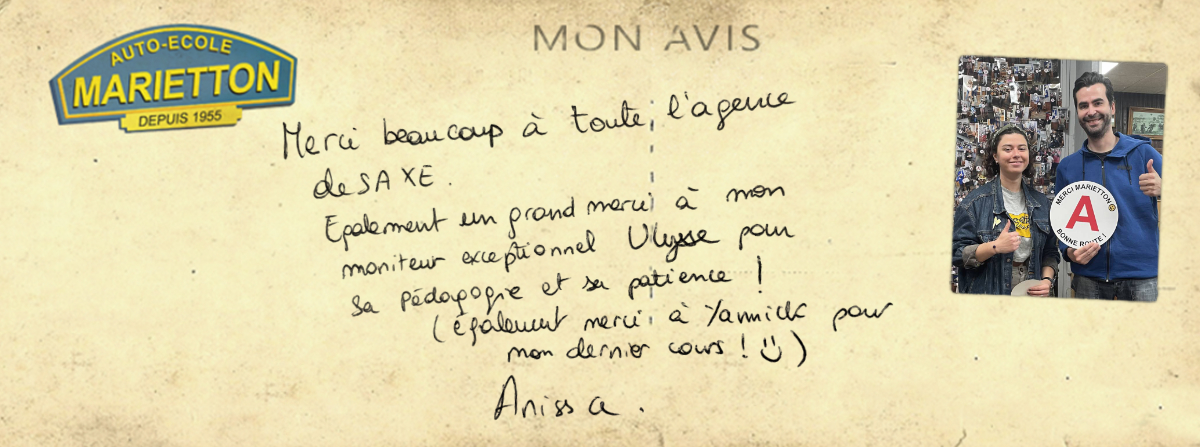 AUTO-ECOLE
MARIETTON
DEPUIS 1955
MON AVIS
Merci beaucoup à toute l'agence
de SAXE.
Egalement un grand merci à mon
moniteur exceptionnel Ulysse pour
sa pédagogie et sa patience !
(également merci à Yannick pour
mon dernier cours ! :))
Anissa.
MERCI MARIETTON
A
BONNE ROUTE !